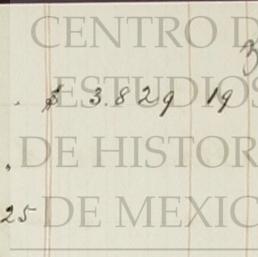 CENTRO D
$ 3.829 19
ESTUDIOS
DE HISTOR
25
DE MEXIC